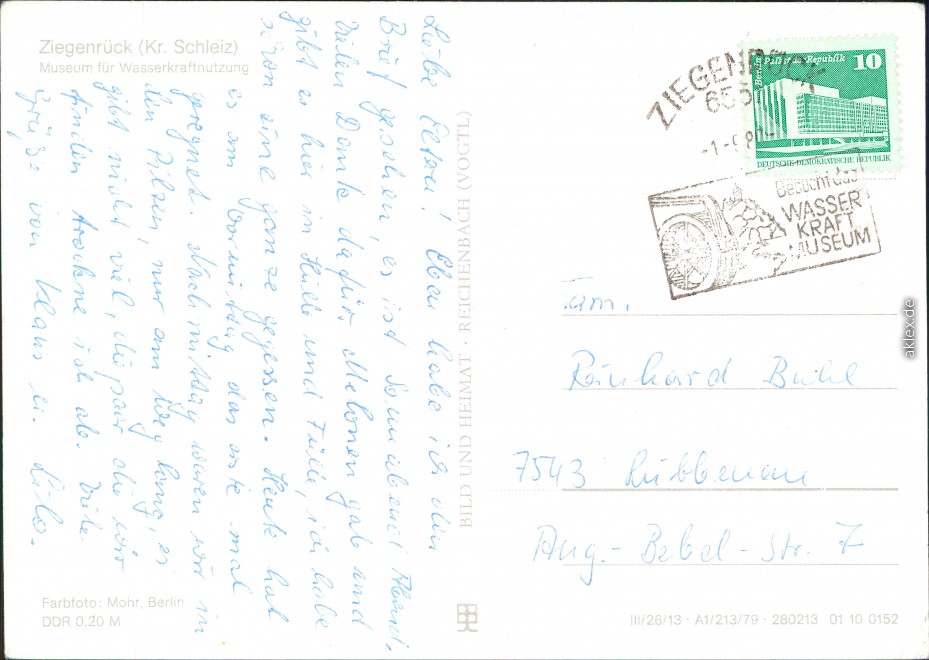 Ziegenrück (Kr. Schleiz)
Museum für Wasserkraftnutzung
Liebe Eltern! Eben habe ich den
Brief gesehen, es ist Sonnabend Abend.
Vielen Dank dafür. Melonen gab und
gibt es hier in Hülle und Fülle, ich habe
schon eine ganze gegessen. Heute hat
es am Vormittag das erste mal
geregnet. Nachmittag waren wir in
den Pilzen, nur am Weg lang, es
gibt nicht viel, die paar die wir
finden trockne ich ab. Viele
Grüße von Klaus u. Lilo.
Farbfoto: Mohr, Berlin
DDR 0,20 M
BILD UND HEIMAT · REICHENBACH (VOGTL)
ZIEGENRÜCK
655
-1.-9.80-
Berlin Palast der Republik 10
DEUTSCHE DEMOKRATISCHE REPUBLIK
Besucht das
WASSER
KRAFT
MUSEUM
Fam.
Reinhard Buhl
7543 Lübbenau
Aug.-Bebel-Str. 7
III/26/13 · A1/213/79 · 280213 01 10 0152
aklex.de